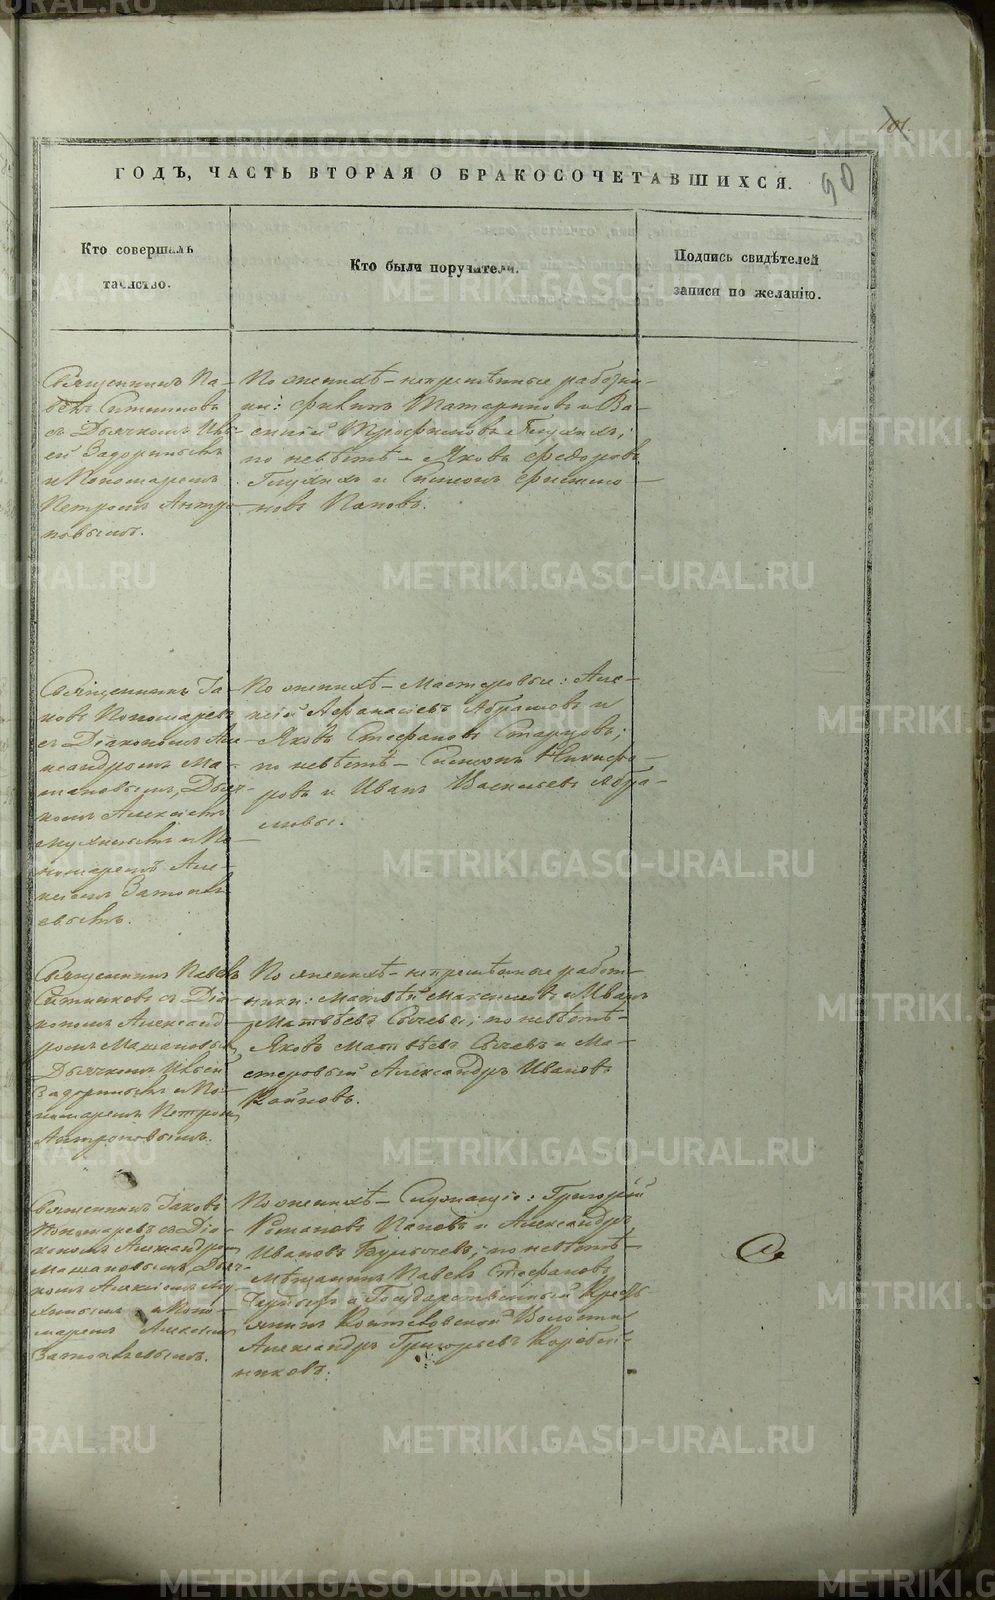 101.
90
ГОДЪ, ЧАСТЬ ВТОРАЯ О БРАКОСОЧЕТАВШИХСЯ.
Кто совершалъ
таинство.
Кто были поручатели.
Подпись свидѣтелей
записи по желанію.
Священникъ Па-
велъ Ситниковъ
съ Дьячкомъ
и Пономаремъ
Петромъ Антро-
повымъ.
По женихѣ – непремѣнные работни-
ки: Филипъ Татариновъ и Ва-
силій Трофимовъ Глухихъ;
по невѣстѣ – Яковъ Федоровъ
Глухихъ и Симеонъ
новъ Поповъ.
Священникъ Іа-
ковъ Пономаревъ
съ Діакономъ Але-
ксандромъ Ма-
шановымъ, Дьяч-
комъ Алексѣемъ
и По-
номаремъ Але-
ксѣемъ
По женихѣ – Мастеровые: Але-
ксѣй Афанасьевъ Абрамовъ и
Яковъ Стефановъ Старцовъ;
по невѣстѣ – Симеонъ Никифо-
ровъ и Иванъ Васильевъ Абра-
мовы.
Священникъ Павелъ
Ситниковъ съ Діа-
кономъ Александ
ромъ Машановымъ,
Дьячкомъ
и По-
номаремъ Петромъ
Антроповымъ.
По женихѣ – непремѣнные работ-
ники: Матвѣй Максимовъ и Иванъ
Матвѣевъ Сычевы; по невѣстѣ –
Яковъ Матвѣевъ Сычевъ и Ма-
стеровый Александръ Ивановъ
Священникъ Іаковъ
Пономаревъ съ Діа-
кономъ Александромъ
Машановымъ, Дьяч-
комъ Алексѣемъ
и Поно-
маремъ Алексѣемъ
По женихѣ – Служащіе: Григорій
Романовъ Поповъ и Александръ
Ивановъ; по невѣстѣ –
Мѣщанинъ Павелъ Стефановъ
и Государственный Кресть
янинъ Волости
Александръ Григорьевъ Коровей-
никовъ.
METRIKI.GASO-URAL.RU